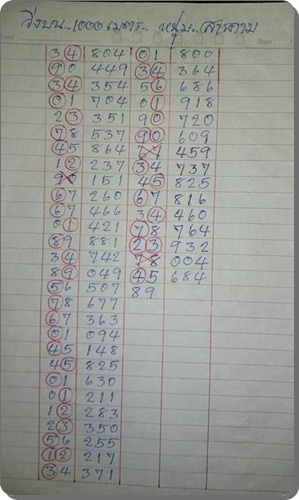 วิ่งบน..1000 เมตร.. หนุ่ม..สารคาม
34 804 01 800
90 449 34 364
34 354 56 686
01 704 01 918
23 351 90 720
78 537 90 609
45 864 67 459
12 237 34 737
90 151 45 825
67 260 67 816
67 466 34 460
01 421 78 764
89 881 23 932
34 742 78 004
89 049 45 684
56 507 89
78 677
67 363
01 094
45 148
45 825
01 630
01 211
12 283
23 350
56 255
12 217
34 371